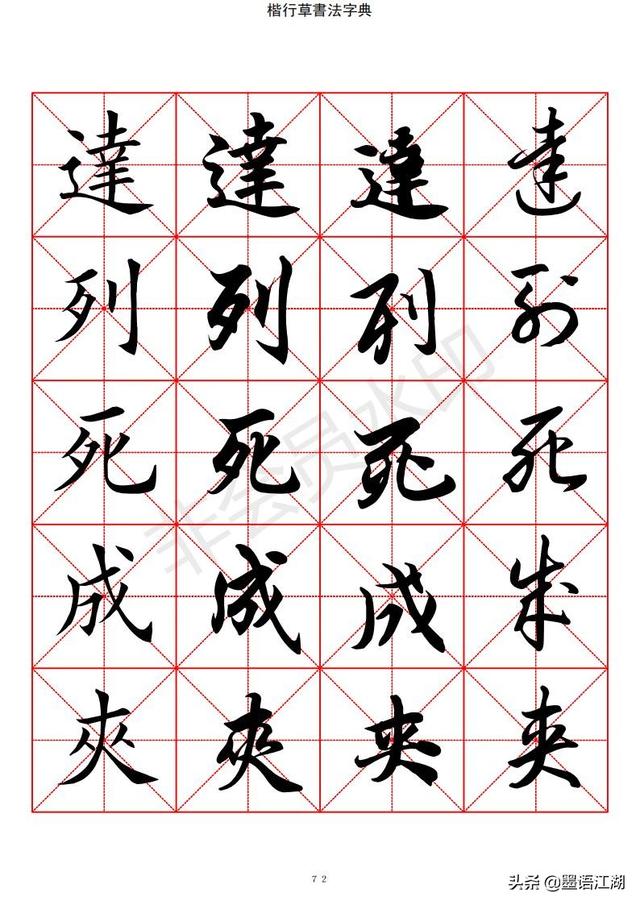 楷行草書法字典
達 達 達 達
列 列 列 列
死 死 死 死
成 成 成 成
夾 夾 夾 夾
非会员水印
72
头条 @墨语江湖